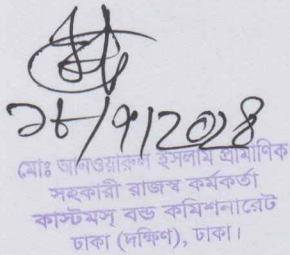 ২৮/৭/2028
মোঃ আনওয়ারুল ইসলাম প্রামাণিক
সহকারী রাজস্ব কর্মকর্তা
কাস্টমস্ বন্ড কমিশনারেট
ঢাকা (দক্ষিণ), ঢাকা।